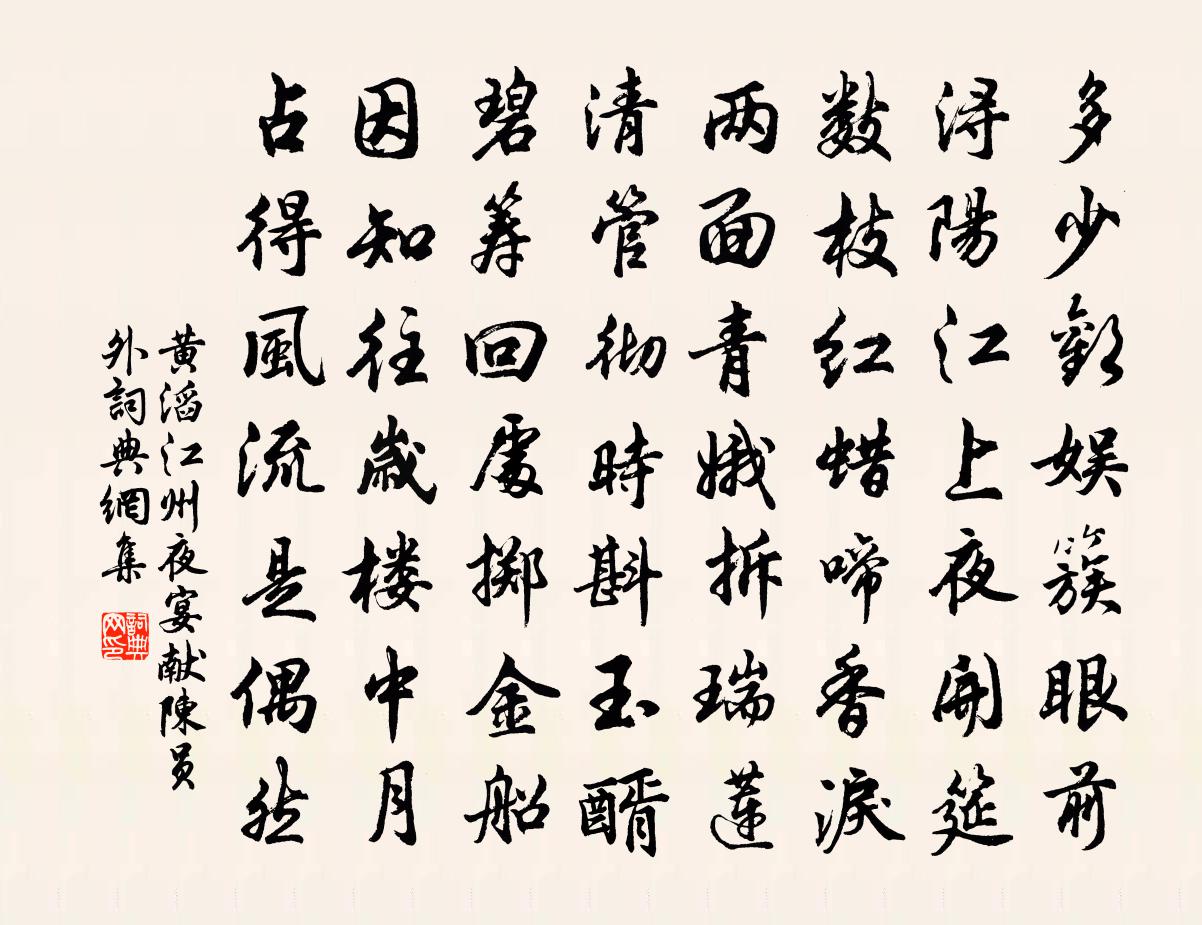 多少歡娱簇眼前
浔陽江上夜開筵
数枝红蜡啼香淚
两面青娥拆瑞蓮
清管彻時斟玉醑
碧筹回處掷金船
因知往歲楼中月
占得風流是偶然
黄滔江州夜宴献陳员
外詞典網集
詞典网印